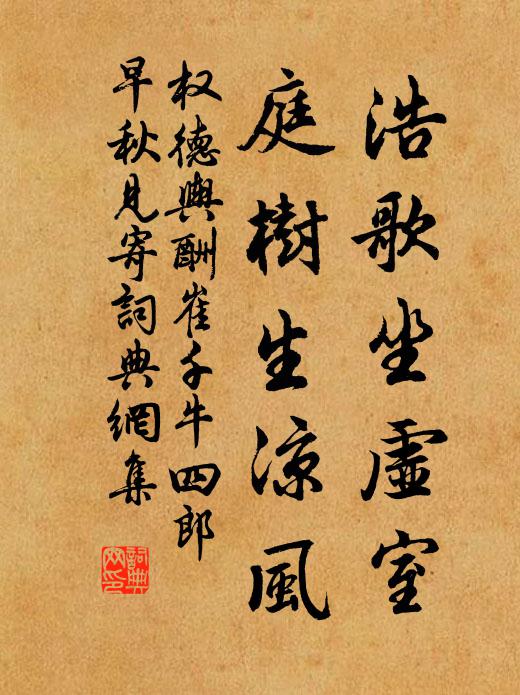 浩歌坐虛室
庭樹生涼風
权德輿酬崔千牛四郎
早秋見寄詞典網集
詞典
网印